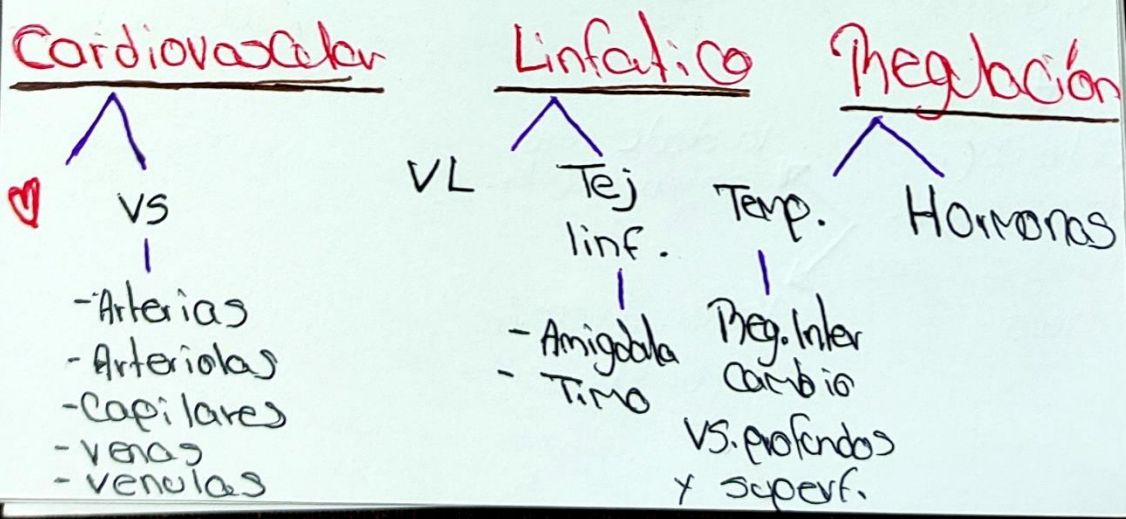 Cardiovascular
VS
-Arterias
-Arteriolas
-Capilares
-venas
-venulas
Linfatico
VL
Tej
linf.
-Amigdala
-Timo
Regulación
Temp.
Reg. Inter
cambio
VS. profundos
y superf.
Hormonas